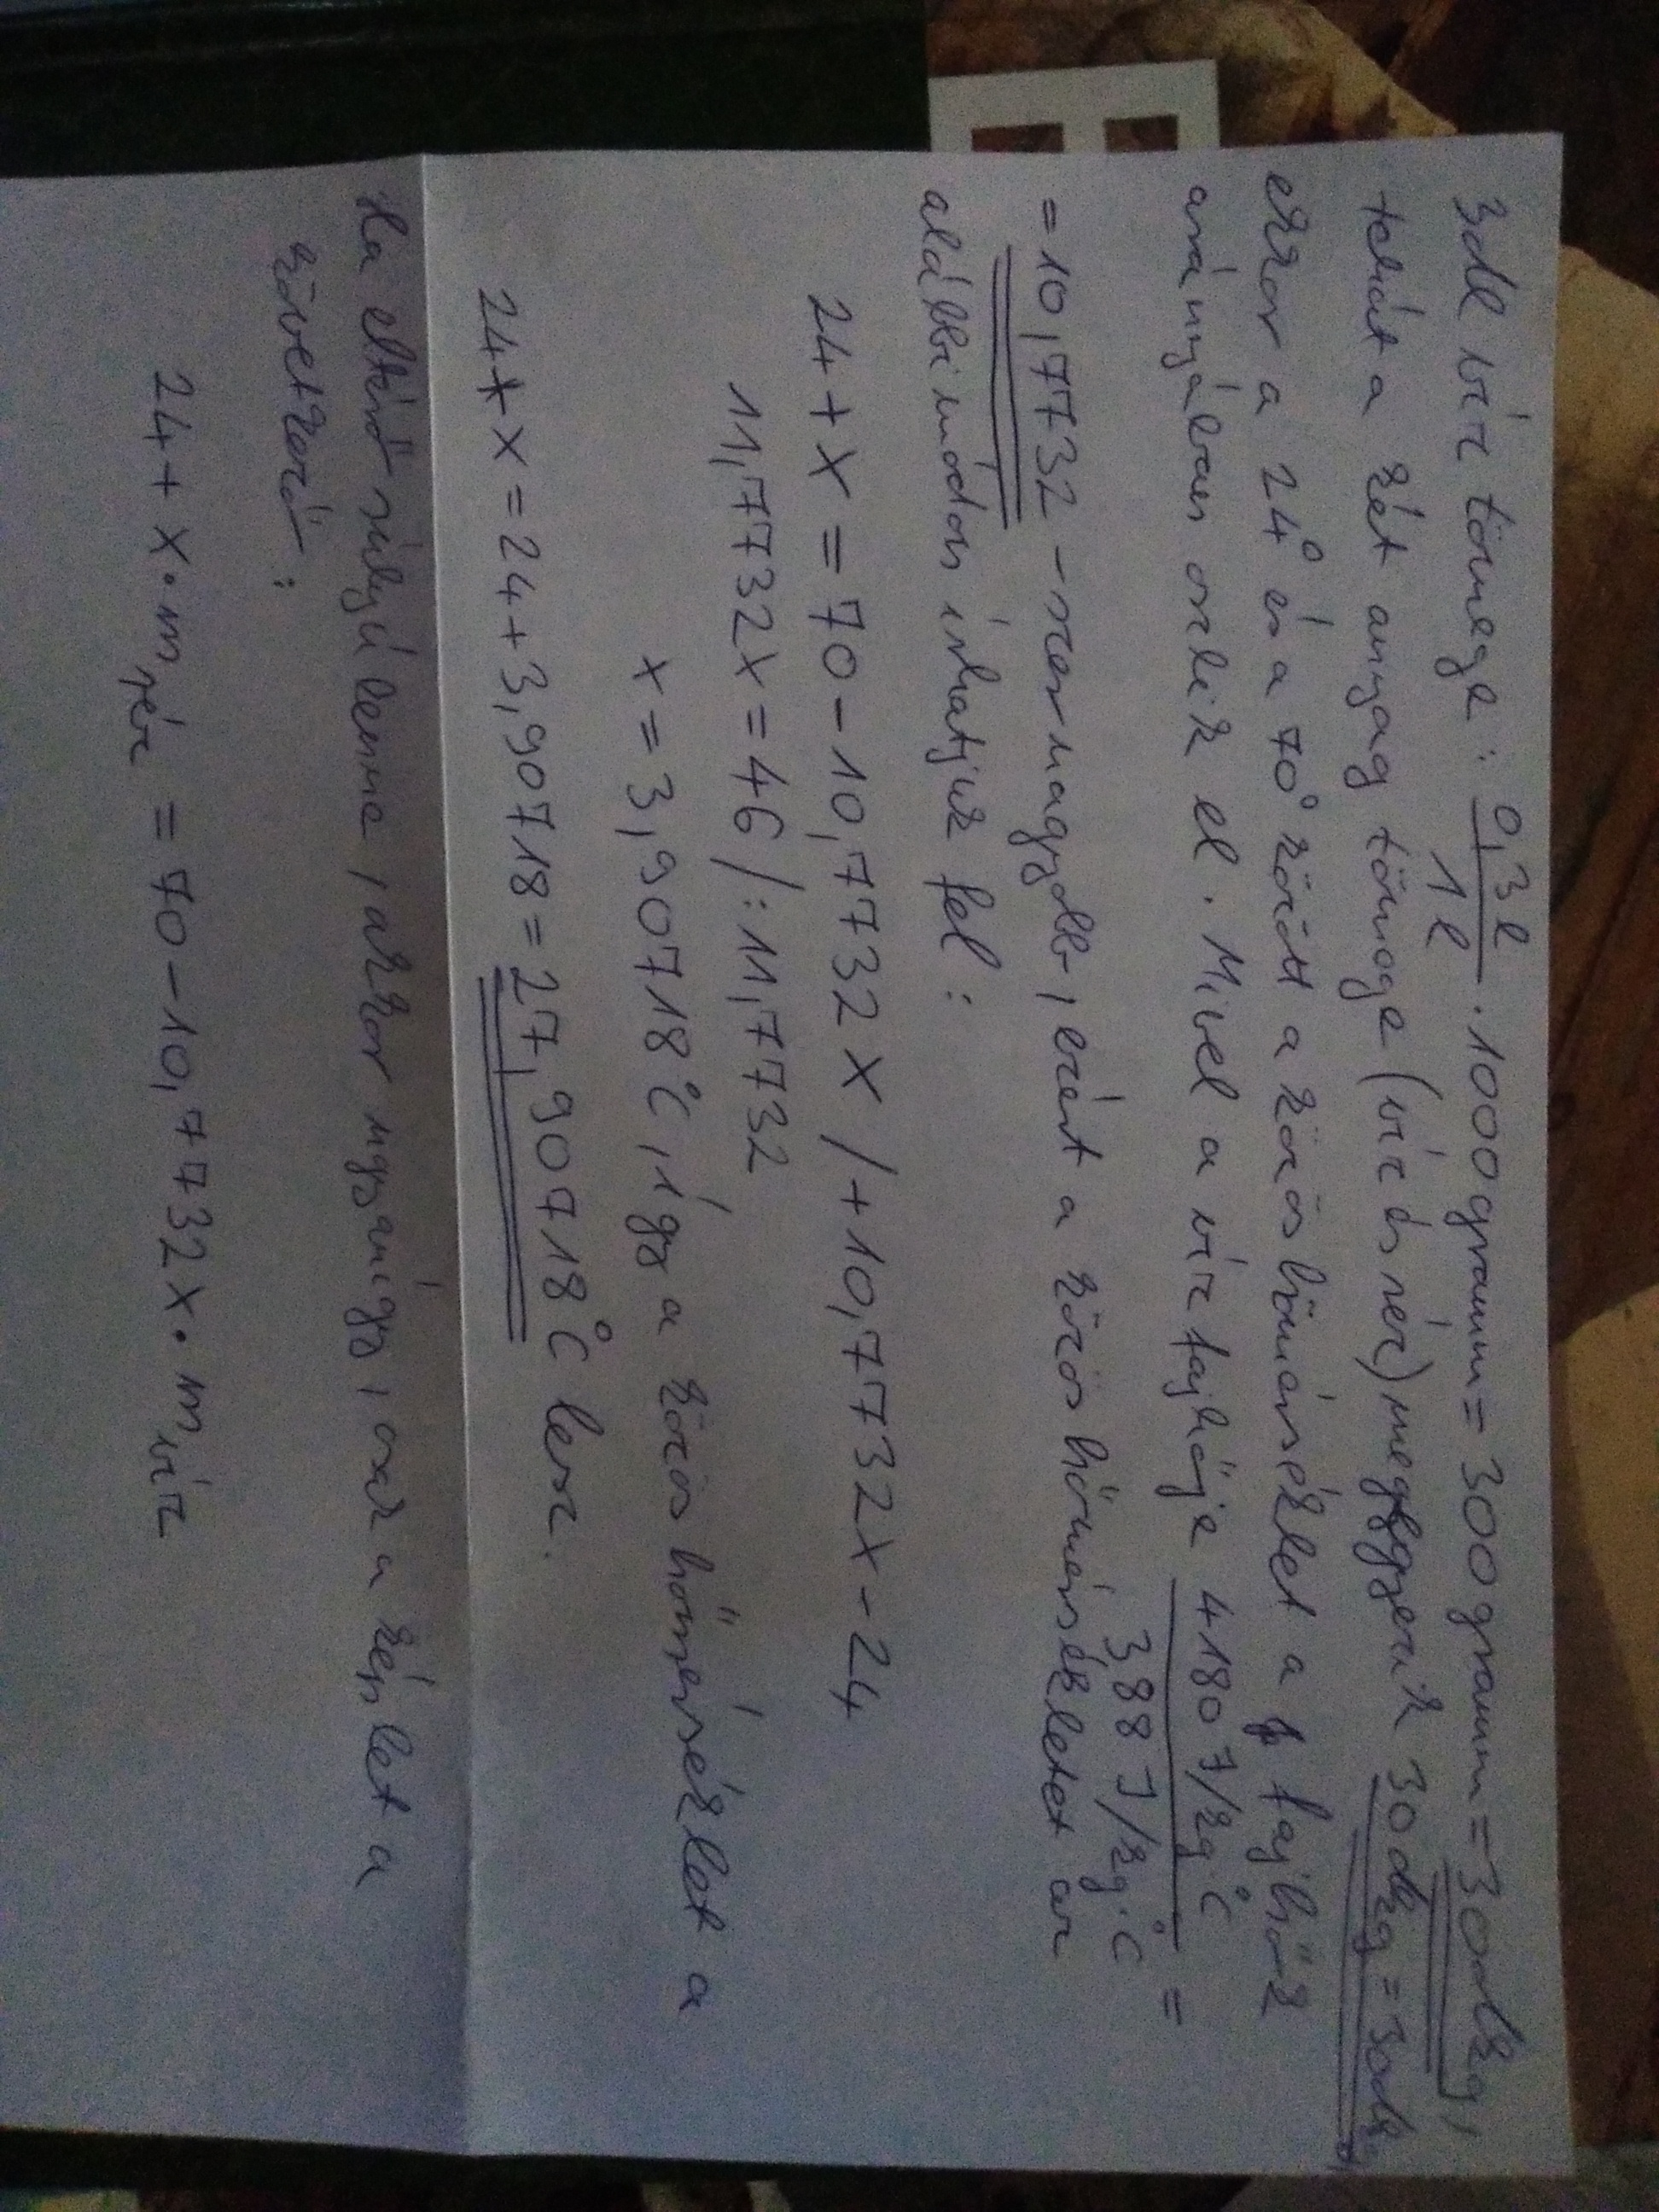 3dl víz tömege: 0,3l/1l · 1000gramm = 300gramm = 30dkg,
tehát a két anyag tömege (víz és réz) megegyezik 30dkg = 30dkg
ekkor a 24° és a 70° között a közös hőmérséklet a fajhők
arányában oszlik el. Mivel a víz fajhője 4180 J/kg°C / 388 J/kg·°C =
= 10,7732 - szer nagyobb, ezért a közös hőmérsékletet az
alábbi módon írhatjuk fel:
24 + x = 70 - 10,7732x /+10,7732x - 24
11,7732x = 46 /:11,7732
x = 3,90718°C, így a közös hőmérséklet a
24 + x = 24 + 3,90718 = 27,90718°C lesz.
Ha eltérő súlyú lenne, akkor ugyanígy, csak a képlet a
következő:
24 + x · m réz = 70 - 10,7732x · m víz